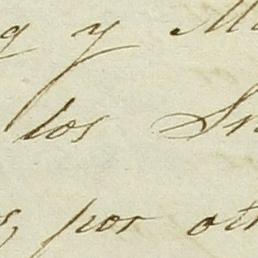 y M
los Sr
por otr